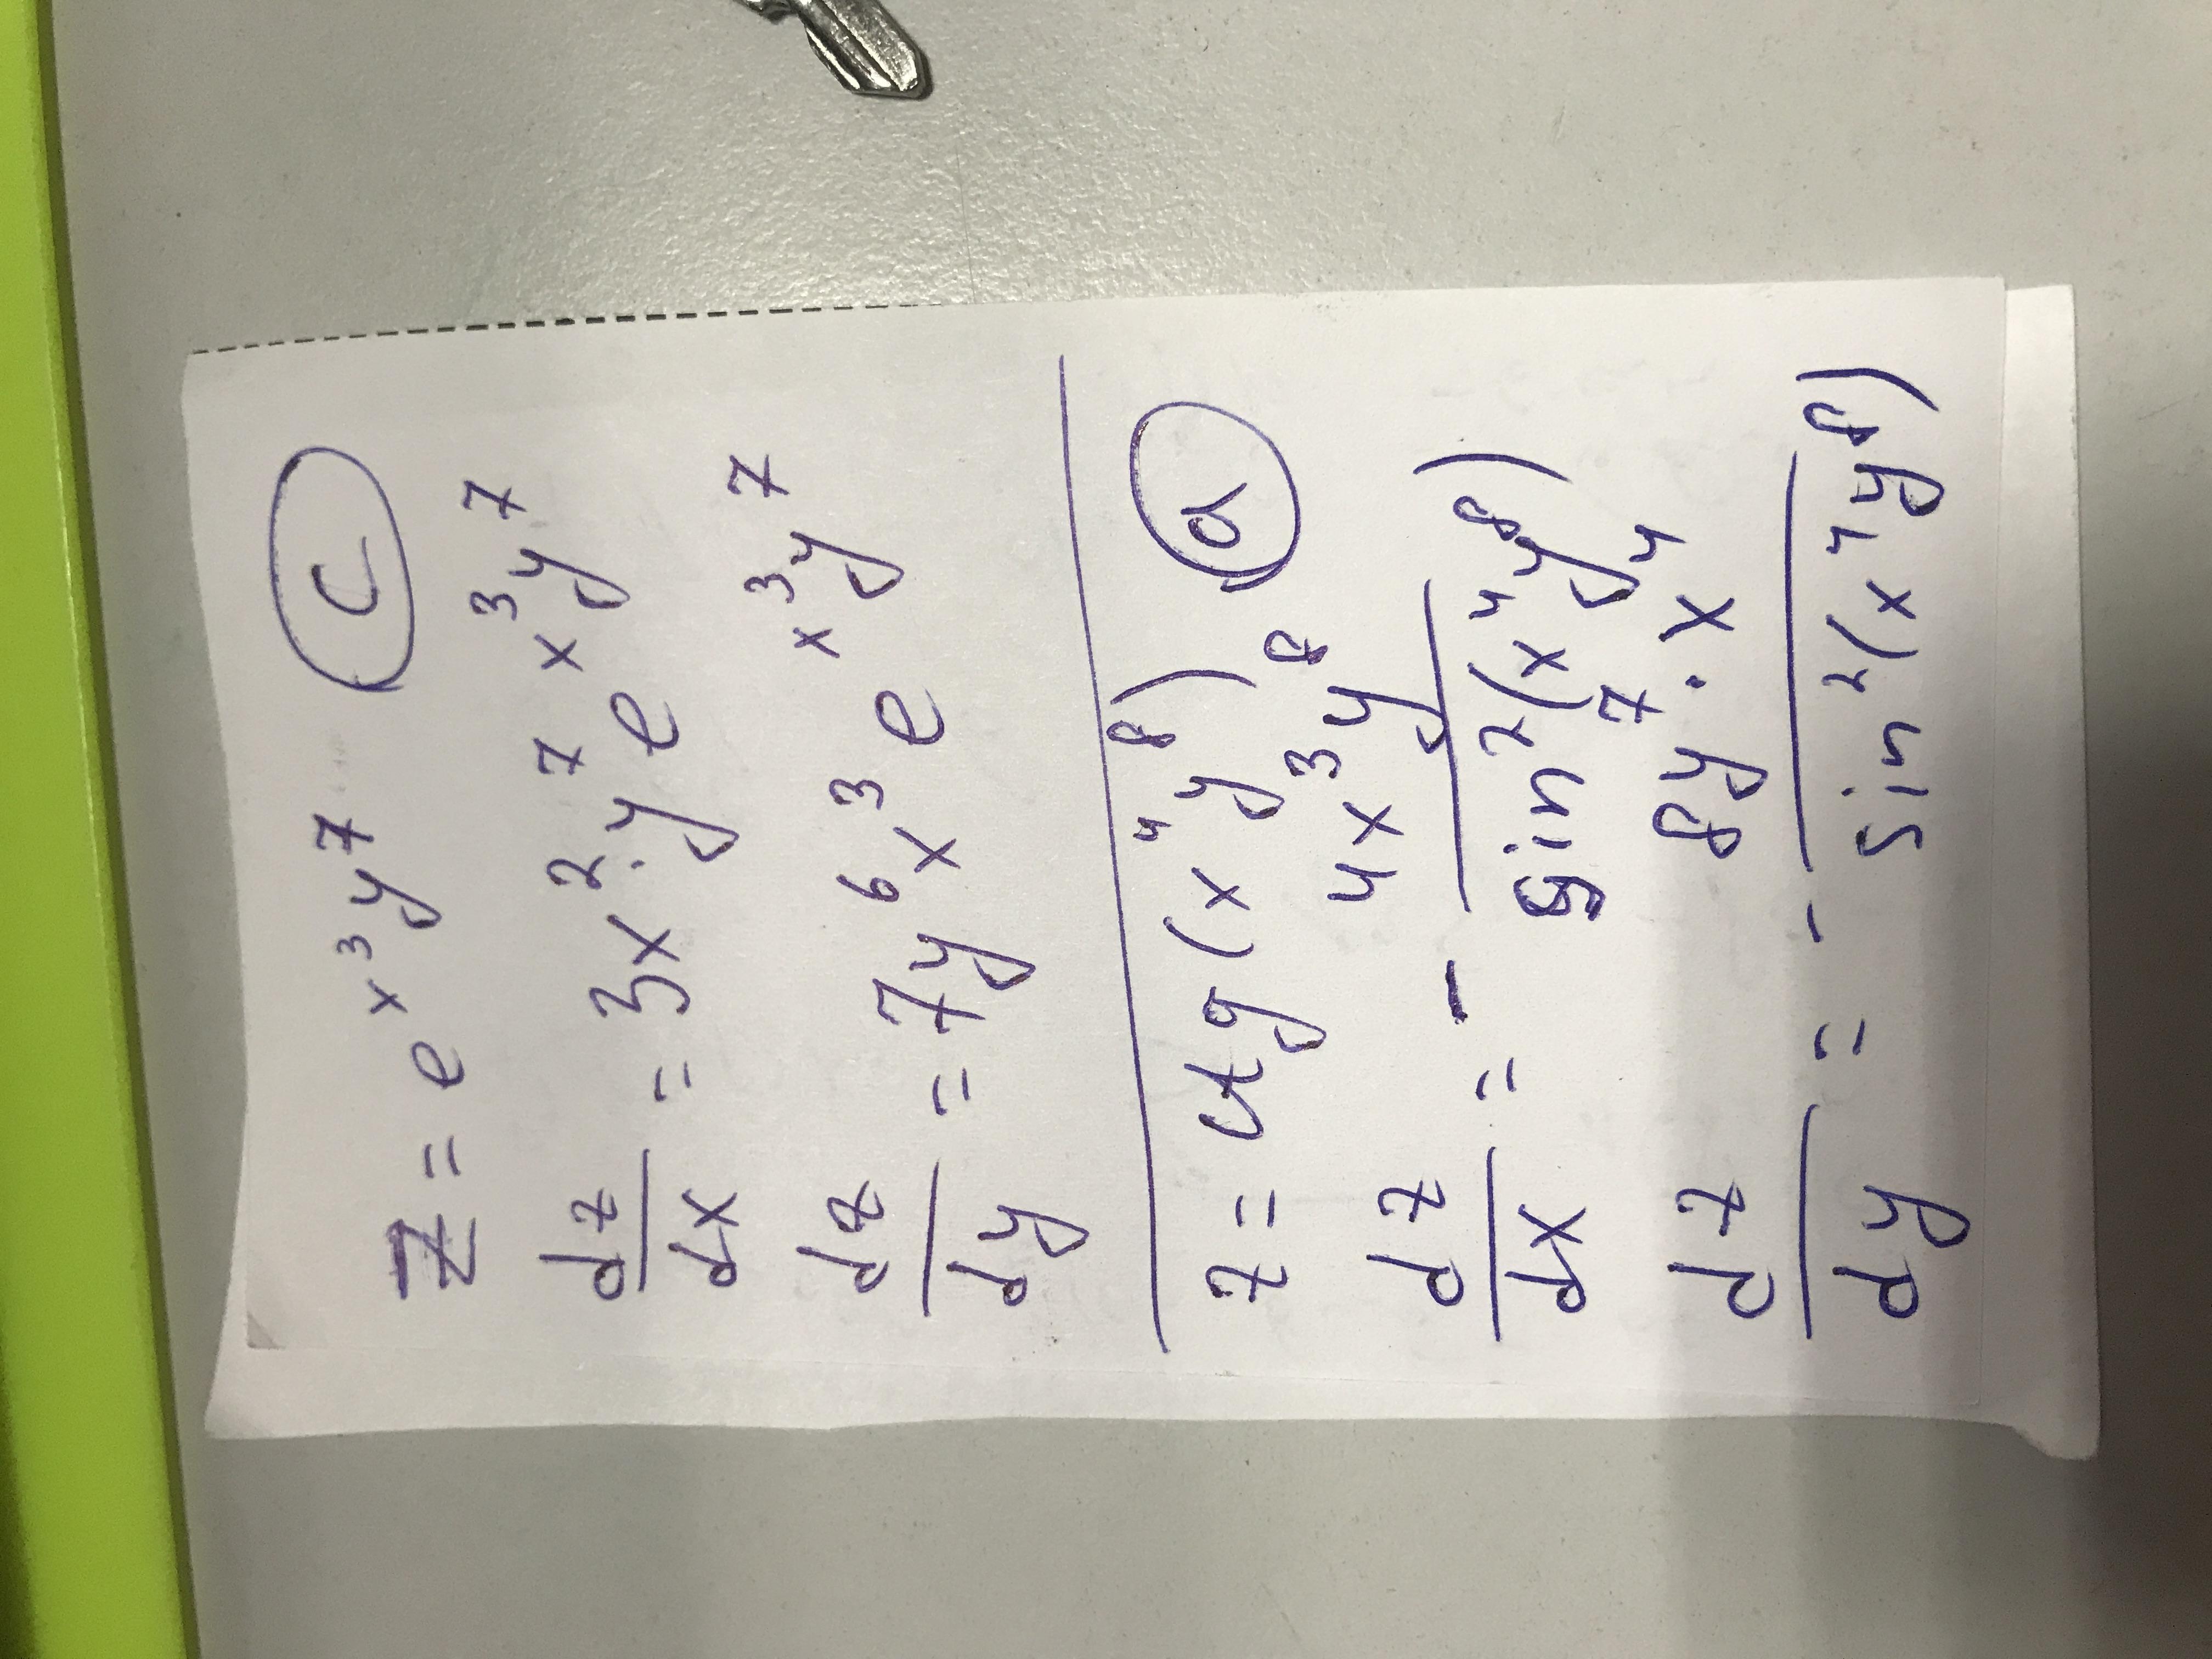 z = e^{x^3 y^7} (c)
dz/dx = 3x^2 · y^7 e^{x^3 y^7}
dz/dy = 7y^6 x^3 e^{x^3 y^7}
z = ctg (x^4 y^8) (a)
dz/dx = - 4x^3 y^8 / sin^2(x^4 y^8)
dz/dy = - 8y^7 · x^4 / sin^2(x^4 y^8)